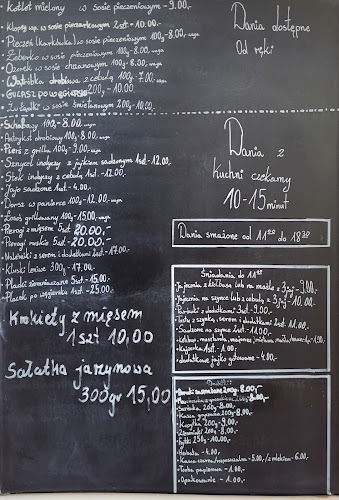 • Kotlet mielony w sosie pieczeniowym - 9.00,-
• Klopsy wp. w sosie pieczarkowym 2szt - 10.00,-
• Pieczeń (karkówka) w sosie pieczeniowym 100g - 8.00,-
• Żeberko w sosie pieczeniowym 100g - 8.00,-
• Ozorek w sosie chrzanowym 100g - 8.00,-
• Wątróbka drobiowa z cebulą 100g - 7.00
• GULASZ PO WĘGIERSKU 200g - 10.00
• Żołądki w sosie śmietanowym 200g - 10.00
Dania dostępne
Od ręki
• Schabowy 100g - 8.00
• Antrykot drobiowy 100g - 8.00
• Piers z grilla 100g - 9.00,-
• Sznycel indyczy z jajkiem sadzonym 1szt - 12.00,-
• Stek indyczy z cebulą 1szt - 12.00.
• Jajo sadzone 1szt - 4.00,-
• Dorsz w panierce 100g - 12.00
• Łosoś grillowany 100g - 15.00
• Pierogi z mięsem 5szt 20.00,-
• Pierogi ruskie 5szt - 20.00.-
• Naleśniki z serem i dodatkami 2szt - 17.00
• Kluski leniwe 300g - 17.00.-
• Placki ziemniaczane 5szt - 15.00.
• Placek po węgiersku 1szt - 25.00.
Krokiety z mięsem
1 szt 10,00
Sałatka jarzynowa
300gr 15,00
Dania z
kuchni czekamy
10-15 minut
Dania smażone od 11³⁰ do 18³⁰
Śniadania do 11³⁰
• Jajecznica z kiełbasą lub na maśle z 3 jaj - 9.00,-
• Jajecznica na szynce lub z cebulą z 3 jaj - 10.00.
• Parówki z dodatkami 3szt - 9.00.-
• Tosty z szynką, serem i dodatkami 2szt 11.00.
• Sadzone na szynce 2szt - 11.00.-
• Ketchup, musztarda,
• Kajzerka 1szt - 1.00.
• dodatkowe jajko gotowane - 4.00.-
Dodatki:
200g - 8.00,-
• Surówka 200g - 8.00.
• Kasza gryczana 200g - 8.00.
• Kopytka 200g - 9.00.
• Ziemniaki 200g - 8.00.-
• Frytki 250g - 10.00.
• Herbata - 4.00.-
• Kawa czarna/rozpuszczalna - 5.00,-/z mlekiem - 6.00.
• Torba papierowa - 1.00.-
• Opakowanie - 1.00.-